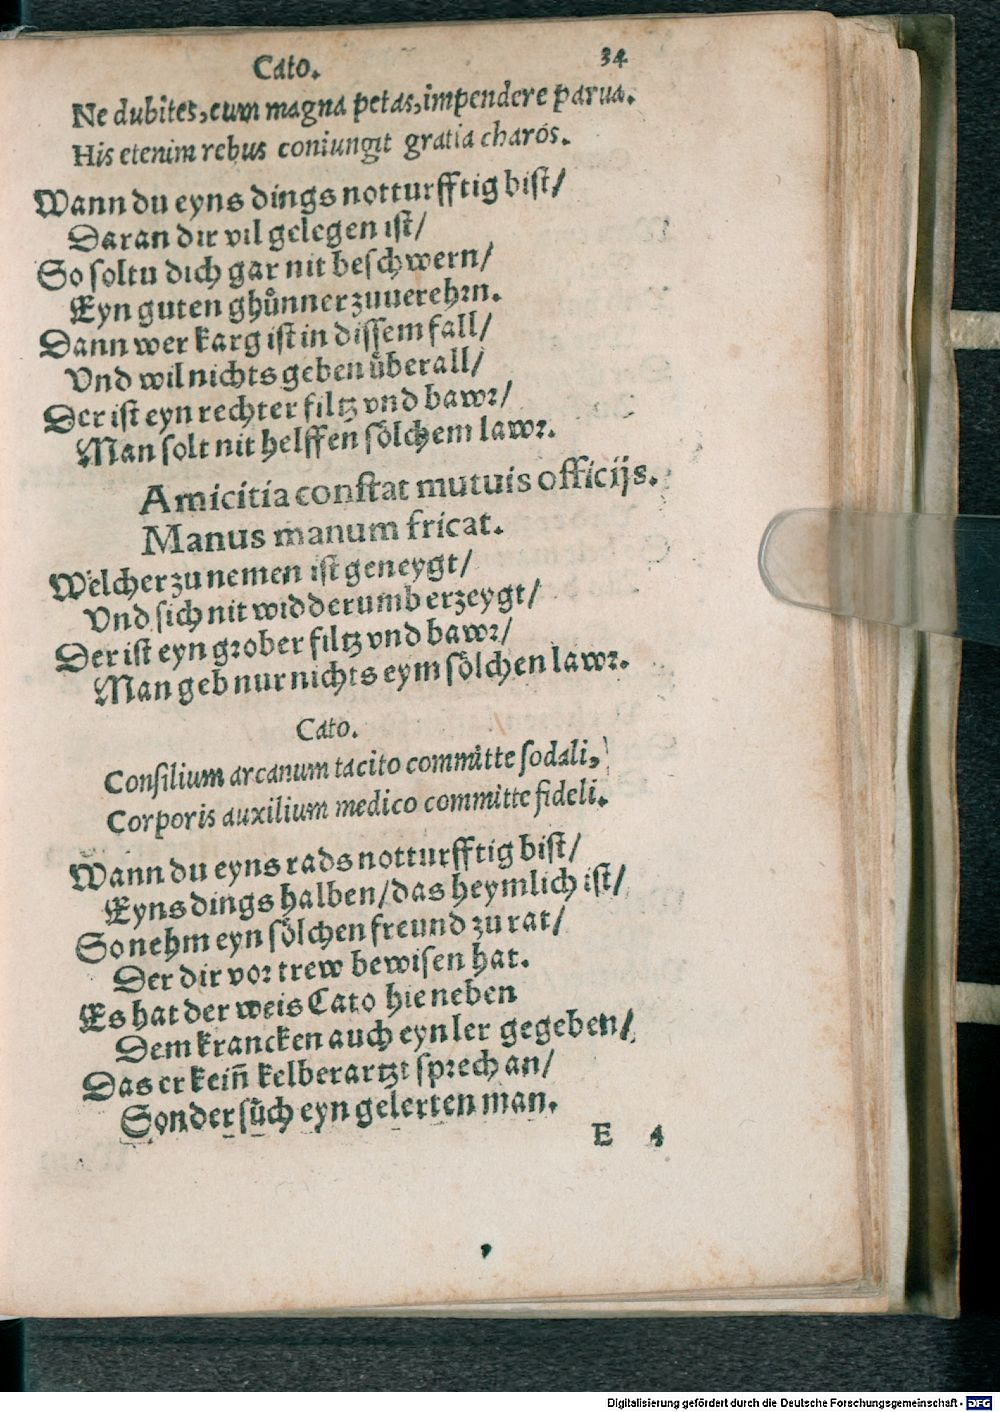 Cato. 34
Ne dubites, cum magna petas, impendere parua.
His etenim rebus coniungit gratia charos.
Wann du eyns dings notturfftig bist/
Daran dir vil gelegen ist/
So soltu dich gar nit beschwern/
Eyn guten ghůnner zuuerehrn.
Dann wer karg ist in dissem fall/
Vnd wil nichts geben ůberall/
Der ist eyn rechter filtz vnd bawr/
Man solt nit helffen sölchem lawr.
Amicitia constat mutuis officijs.
Manus manum fricat.
Welcher zu nemen ist geneygt/
Vnd sich nit widderumb erzeygt/
Der ist eyn grober filtz vnd bawr/
Man geb nur nichts eym sölchen lawr.
Cato.
Consilium arcanum tacito committe sodali,
Corporis auxilium medico committe fideli.
Wann du eyns rads notturfftig bist/
Eyns dings halben/ das heymlich ist/
So nehm eyn sölchen freund zu rat/
Der dir vor trew bewisen hat.
Es hat der weis Cato hieneben
Dem krancken auch eyn ler gegeben/
Das er keiñ kelberartzt sprech an/
Sonder sůch eyn gelerten man.
E 4
Digitalisierung gefördert durch die Deutsche Forschungsgemeinschaft - DFG